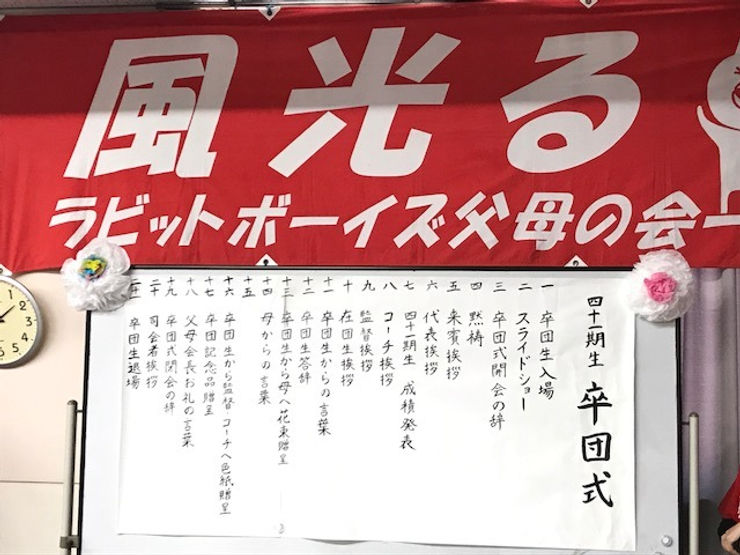 風光る
ラビットボーイズ父母の会一
四十一期生 卒団式
一 卒団生入場
二 スライドショー
三 卒団式開会の辞
四 黙祷
五 来賓挨拶
六 代表挨拶
七 四十一期生 成績発表
八 コーチ挨拶
九 監督挨拶
十 在団生挨拶
十一 卒団生からの言葉
十二 卒団生答辞
十三 卒団生から母へ花束贈呈
十四 母からの言葉
十五
十六 卒団生から監督・コーチへ色紙贈呈
十七 卒団記念品贈呈
十八 父母会長お礼の言葉
十九 卒団式閉会の辞
二十 司会者挨拶
二十一 卒団生退場